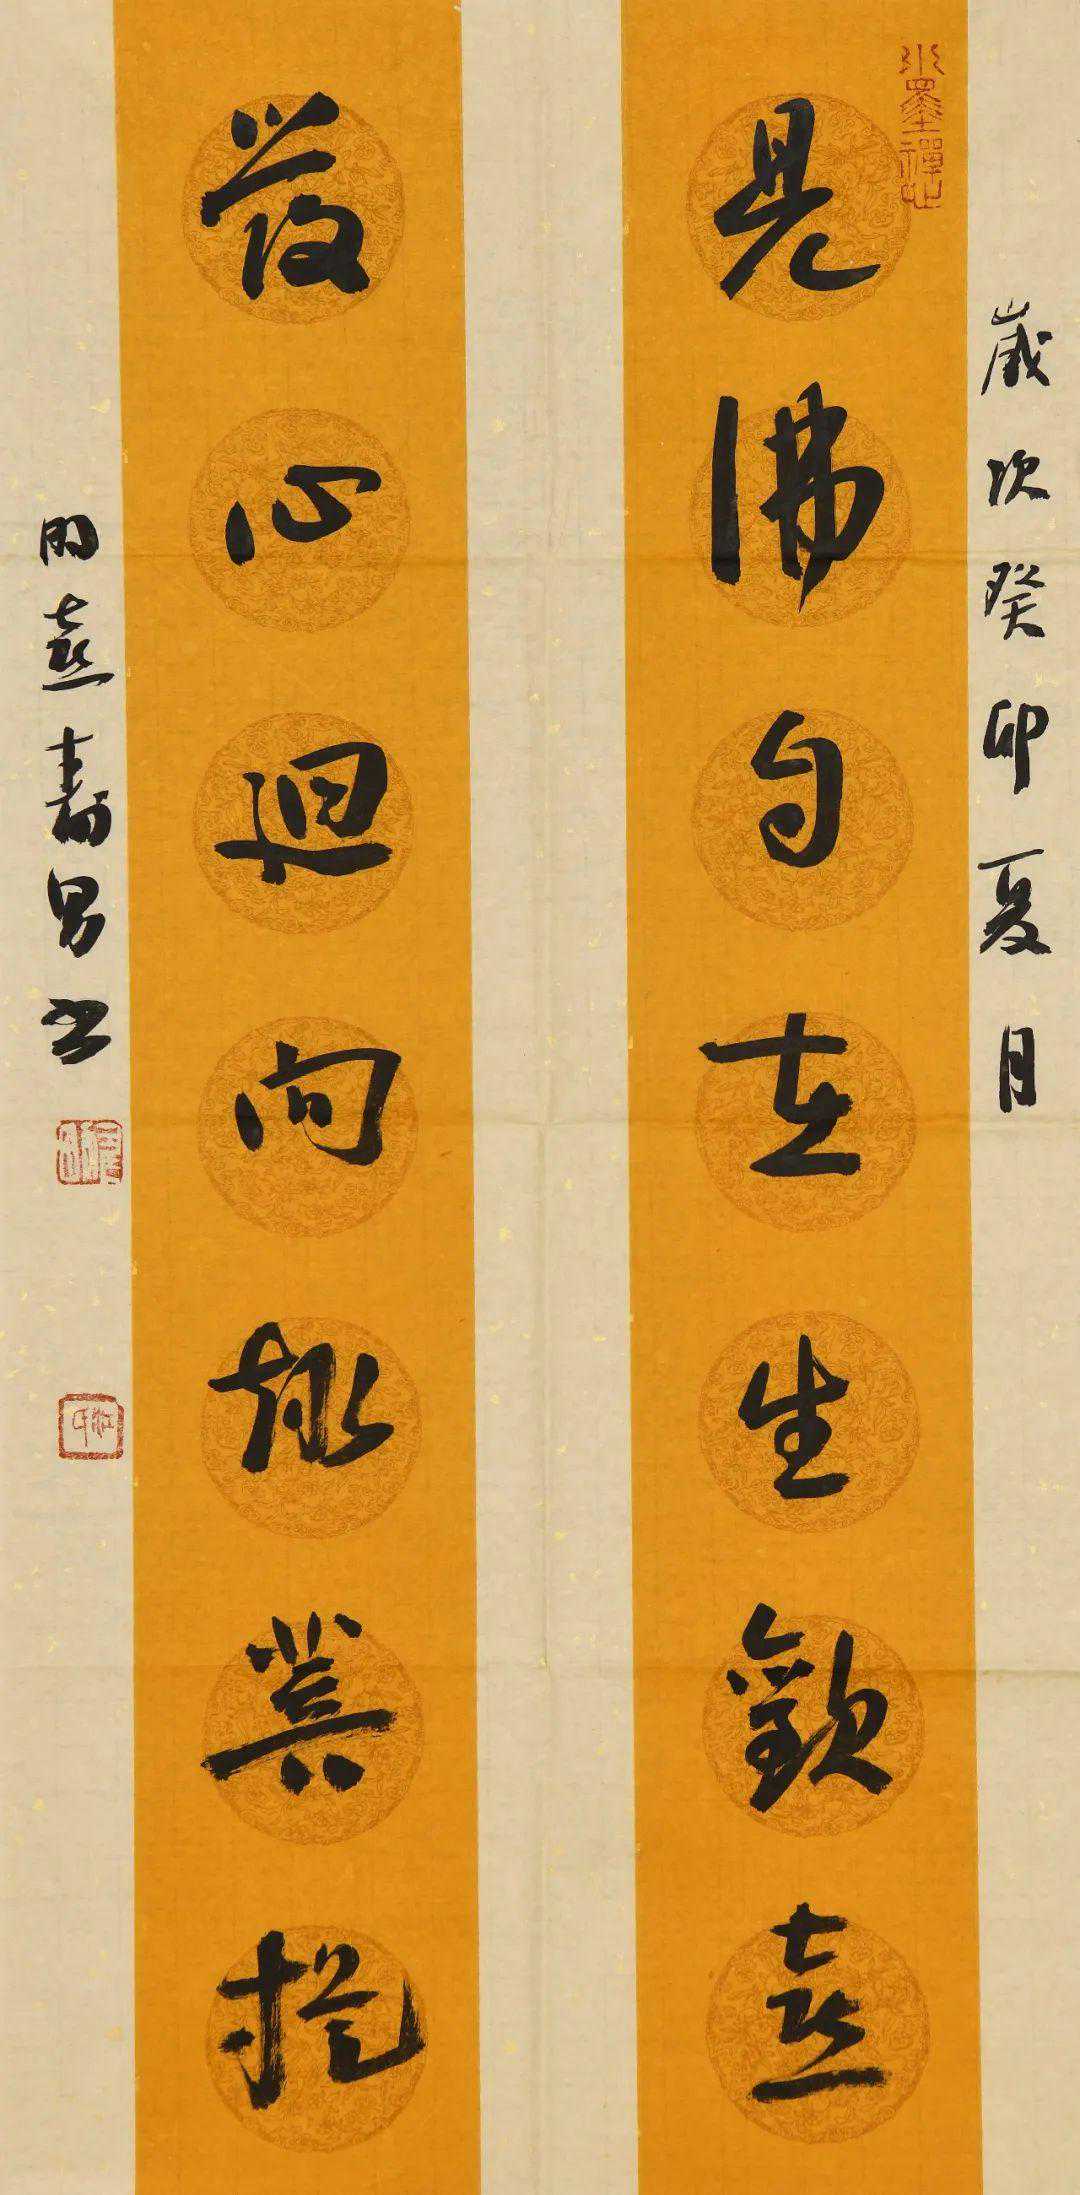 歲次癸卯夏月
水墨禪心
見佛自在生歡喜
發心迴向趣菩提
明喜壽男書